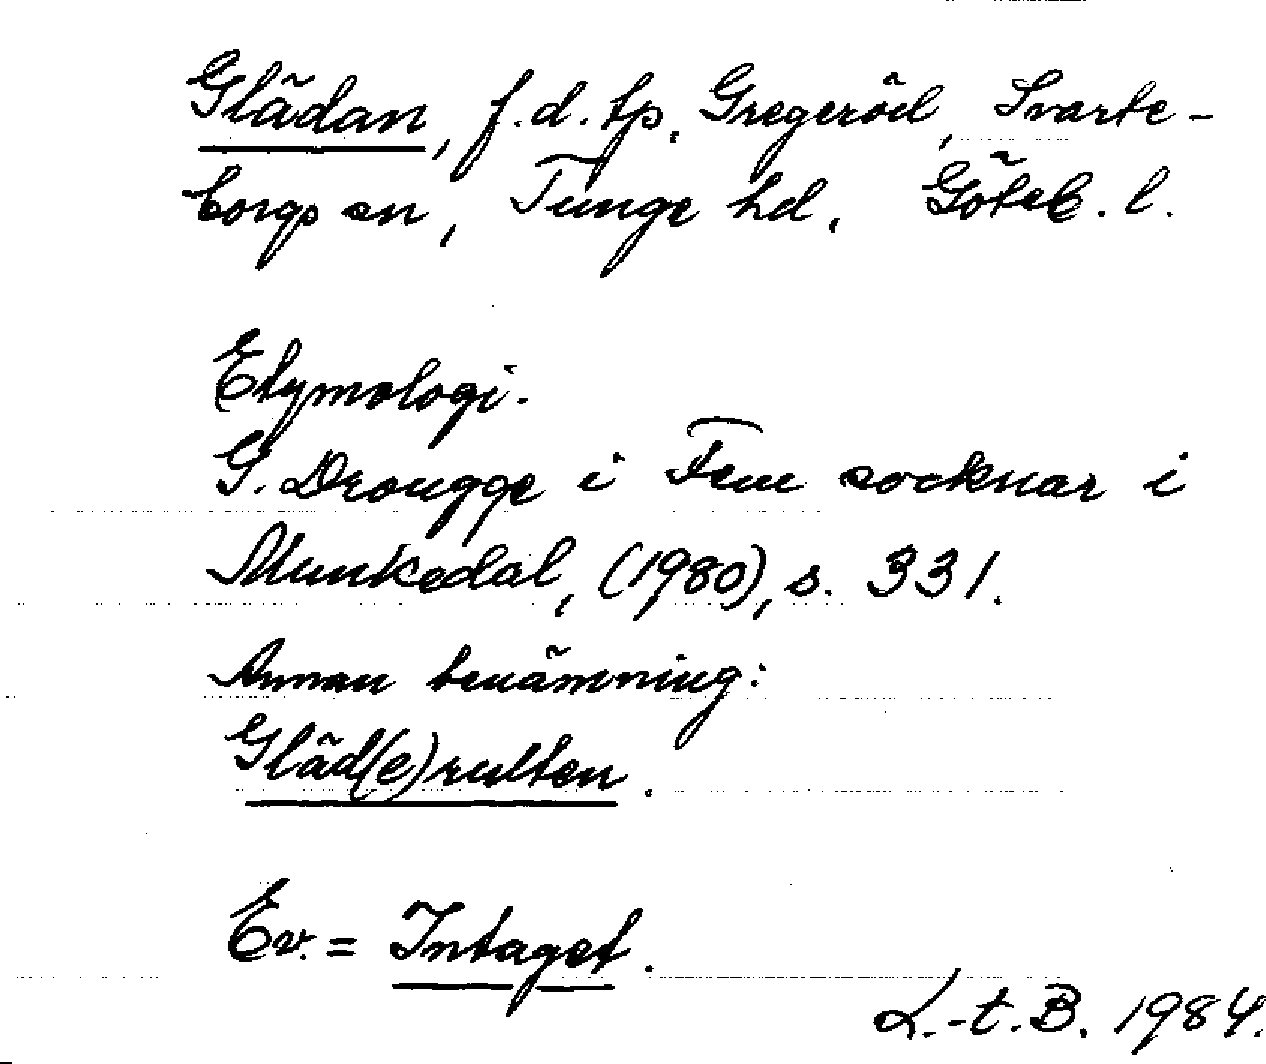 Glädan, f.d. tp. Gregeröd, Svarte-
borgs sn, Tunge hd. Göteb. l.
Etymologi.
G. Drougge i Fem socknar i
Munkedal, (1980), s. 331.
Annan benämning:
Gläd(e)rulten.
Ev. = Intaget.
L.-t.B. 1984.